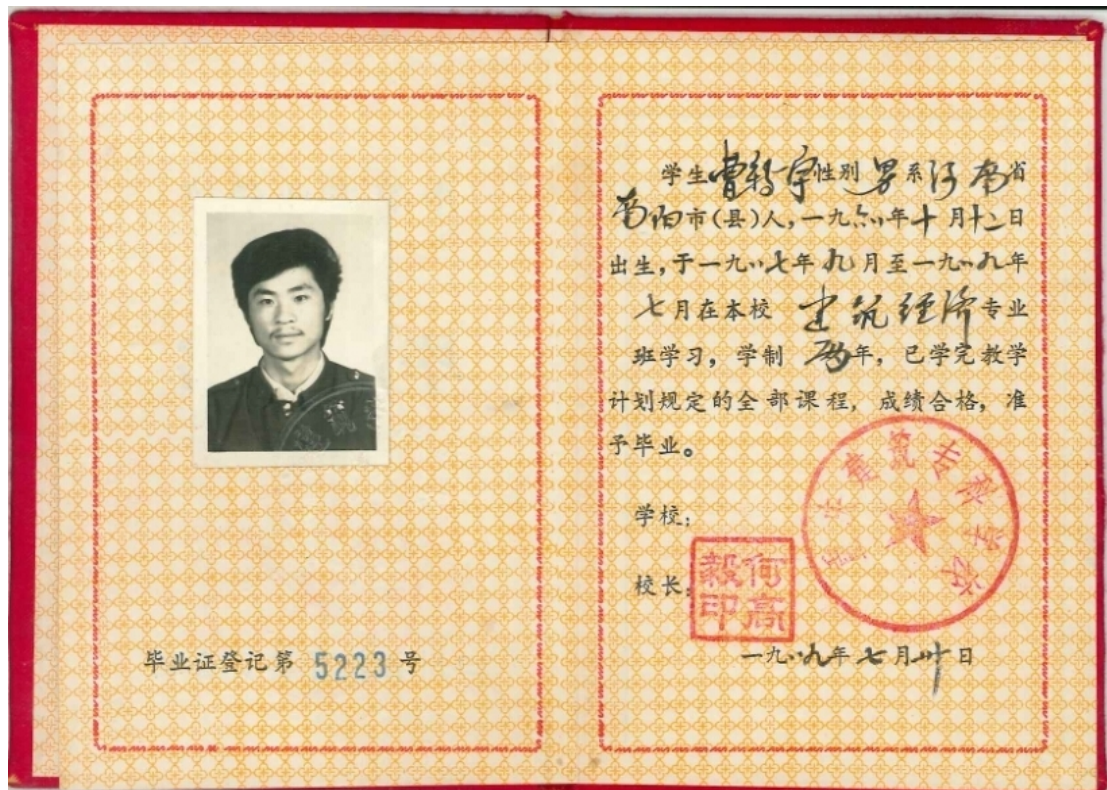 毕业证登记第 5223 号
学生曹 宇性别 男 系 河南省
南阳市(县)人,一九六八年十月十二日
出生,于一九八七年九月至一九八九年
七月在本校 建筑经济专业
班学习,学制 两年,已学完教学
计划规定的全部课程,成绩合格,准
予毕业。
学校:
重庆建筑专科学校
校长:
何高毅印
一九八九年七月卅日